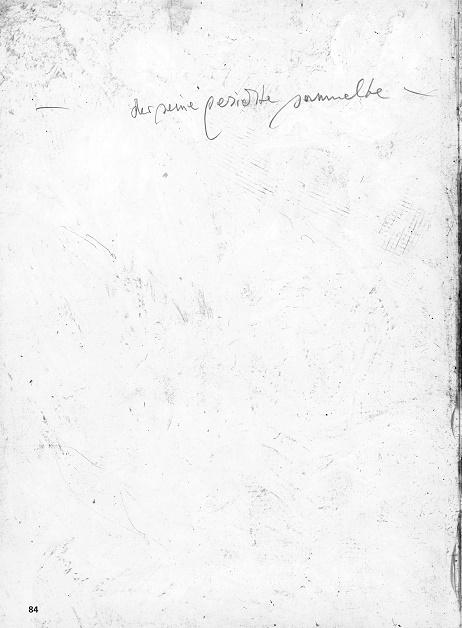 — der seine gesichte sammelte —
84